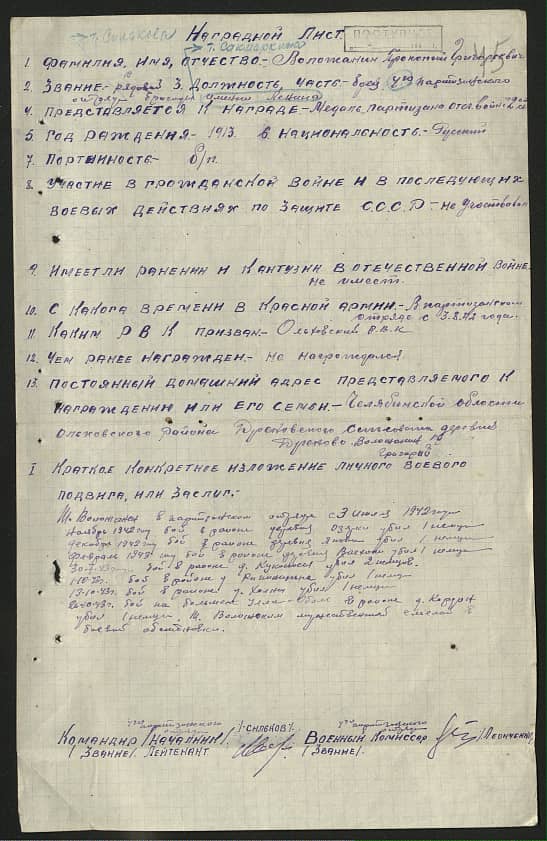 т. Силкова
Наградной Лист
ПОСТУПИЛ
т. Сакмаркина
1. Фамилия, имя, отчество:- Воложанин Прокопий Григорьевич
2. Звание:- рядовой 3. Должность, часть:- боец 4го партизанского
отряда бригады имени Ленина
4. Представляется к награде:- Медаль, партизану отеч. войны 2ой ст
5. Год раждения:- 1913. 6. Национальность:- Русский
7. Портийность:- б/п.
8. Участие в гражданской войне и в последующих
боевых действиях по защите С.С.С.Р:- не участвовал
9. Имеет ли ранении и кантузии в отечественной войне:-
не имеет.
10. С какога времени в Красной армии:- В партизанском
отряде с 3.8.42 года.
11. Каким Р В К призван:- Ольховский Р.В.К
12. Чем ранее награжден:- не награждался
13. Постоянный домашний адрес представляемого к
награждению или его семеи:- Челябинской области
Ольховского района сельсовета деревня
Воложанин
Григорий
I Краткое конкретное изложение личного боевого
подвига, или заслуг:-
Т. Воложанин в партизанском отряде с 3 июля 1942 года
Ноябрь 1942 году бой в районе деревня убил 1 немца
декабрь 1942 году бой в районе деревня убил 1 немца
Февраль 1943 году бой в районе деревня убил 1 немца
бой в районе д. убил 2 немцев.
1-10-43г. бой в районе д. убил 1 немца
13-10-43г. бой в районе д. убил 1 немца
бой на большаке в районе д.
убил 1 немца. Т. Воложанин мужественный смелый в
боевой обстановки.
4го партизанского отряда
Командир /Началник/ /Силков/.
/Звание/. Лейтенант
4го партизанского отряда
Военный Комиссар
/Звание/.